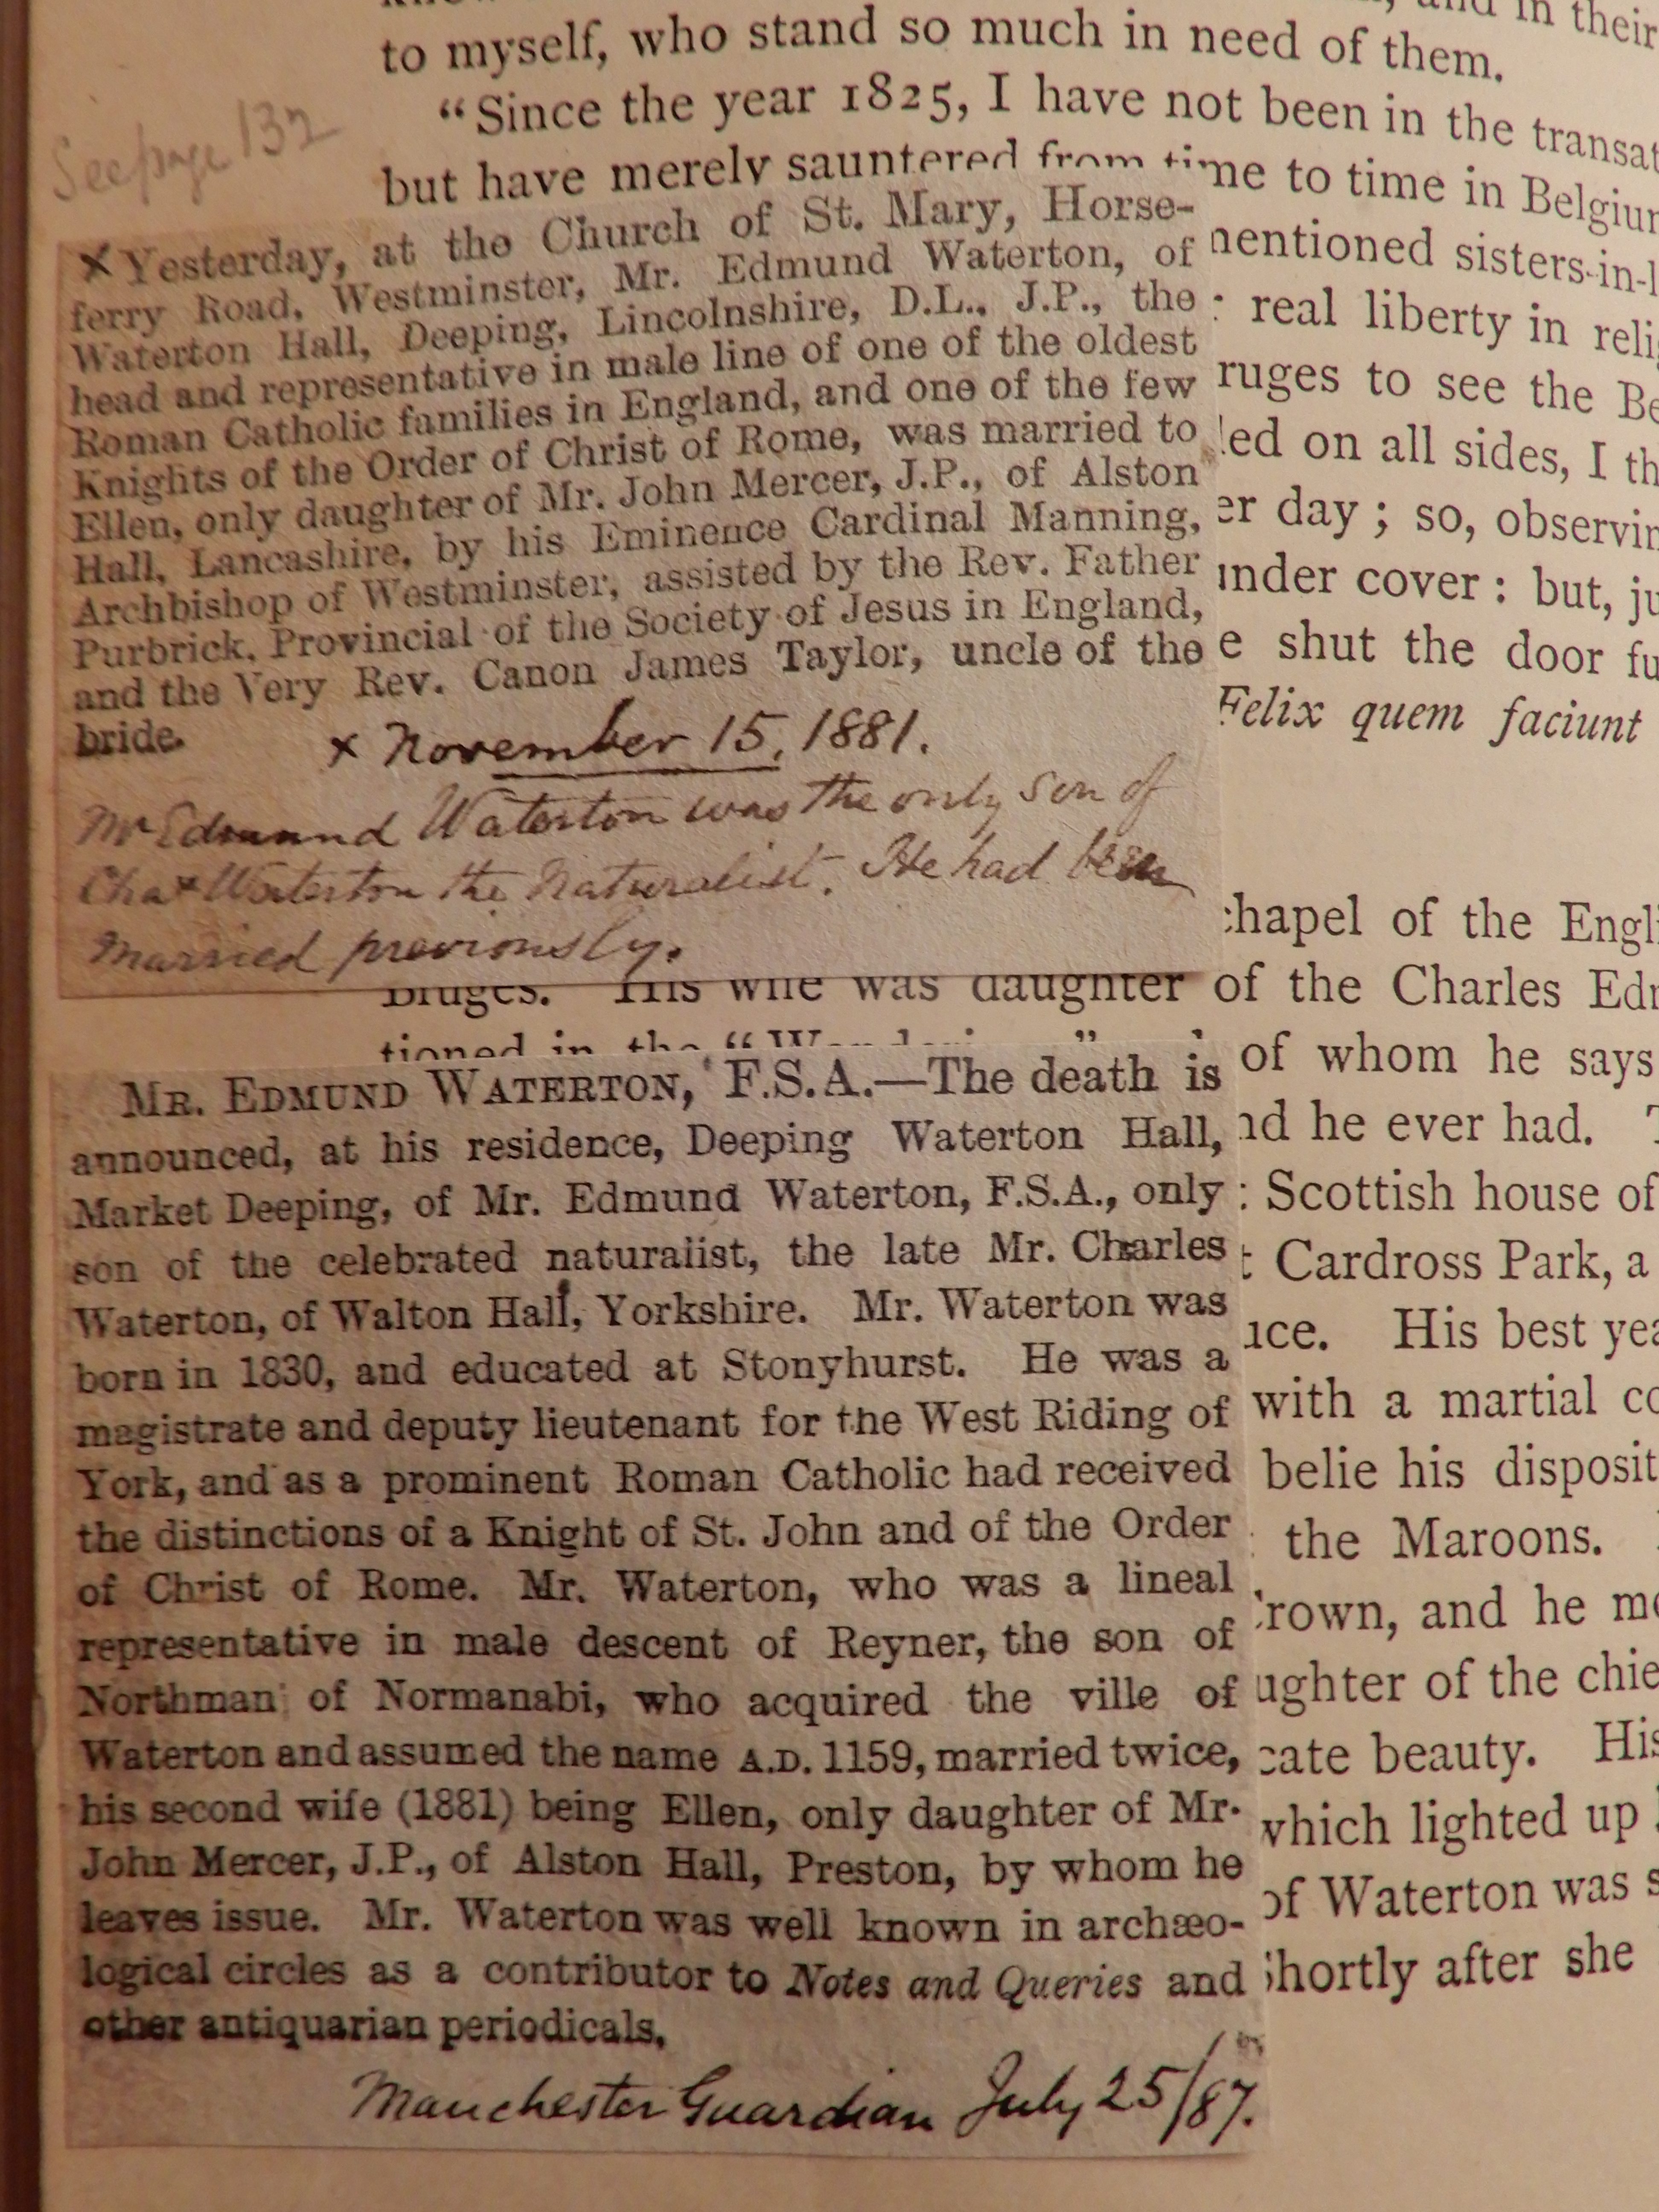 and in their
to myself, who stand so much in need of them.
"Since the year 1825, I have not been in the transat
but have merely sauntered from time to time in Belgium
See page 132
× Yesterday, at the Church of St. Mary, Horse-
ferry Road, Westminster, Mr. Edmund Waterton, of
Waterton Hall, Deeping, Lincolnshire, D.L., J.P., the
head and representative in male line of one of the oldest
Roman Catholic families in England, and one of the few
Knights of the Order of Christ of Rome, was married to
Ellen, only daughter of Mr. John Mercer, J.P., of Alston
Hall, Lancashire, by his Eminence Cardinal Manning,
Archbishop of Westminster, assisted by the Rev. Father
Purbrick, Provincial of the Society of Jesus in England,
and the Very Rev. Canon James Taylor, uncle of the
bride.
× November 15, 1881.
Mr Edmund Waterton was the only son of
Chas Waterton the Naturalist. He had been
married previously.
mentioned sisters-in-l
: real liberty in reli
ruges to see the Be
ed on all sides, I th
er day ; so, observin
under cover : but, ju
e shut the door fu
Felix quem faciunt
chapel of the Engli
Bruges. His wife was daughter of the Charles Edm
tioned in the "Wanderings," of whom he says
MR. EDMUND WATERTON, F.S.A.—The death is
announced, at his residence, Deeping Waterton Hall,
Market Deeping, of Mr. Edmund Waterton, F.S.A., only
son of the celebrated naturalist, the late Mr. Charles
Waterton, of Walton Hall, Yorkshire. Mr. Waterton was
born in 1830, and educated at Stonyhurst. He was a
magistrate and deputy lieutenant for the West Riding of
York, and as a prominent Roman Catholic had received
the distinctions of a Knight of St. John and of the Order
of Christ of Rome. Mr. Waterton, who was a lineal
representative in male descent of Reyner, the son of
Northman of Normanabi, who acquired the ville of
Waterton and assumed the name A.D. 1159, married twice,
his second wife (1881) being Ellen, only daughter of Mr.
John Mercer, J.P., of Alston Hall, Preston, by whom he
leaves issue. Mr. Waterton was well known in archæo-
logical circles as a contributor to Notes and Queries and
other antiquarian periodicals.
Manchester Guardian July 25/87.
nd he ever had. T
: Scottish house of
t Cardross Park, a
ice. His best yea
with a martial co
belie his disposit
the Maroons.
Crown, and he m
ughter of the chie
cate beauty. His
which lighted up
of Waterton was s
Shortly after she